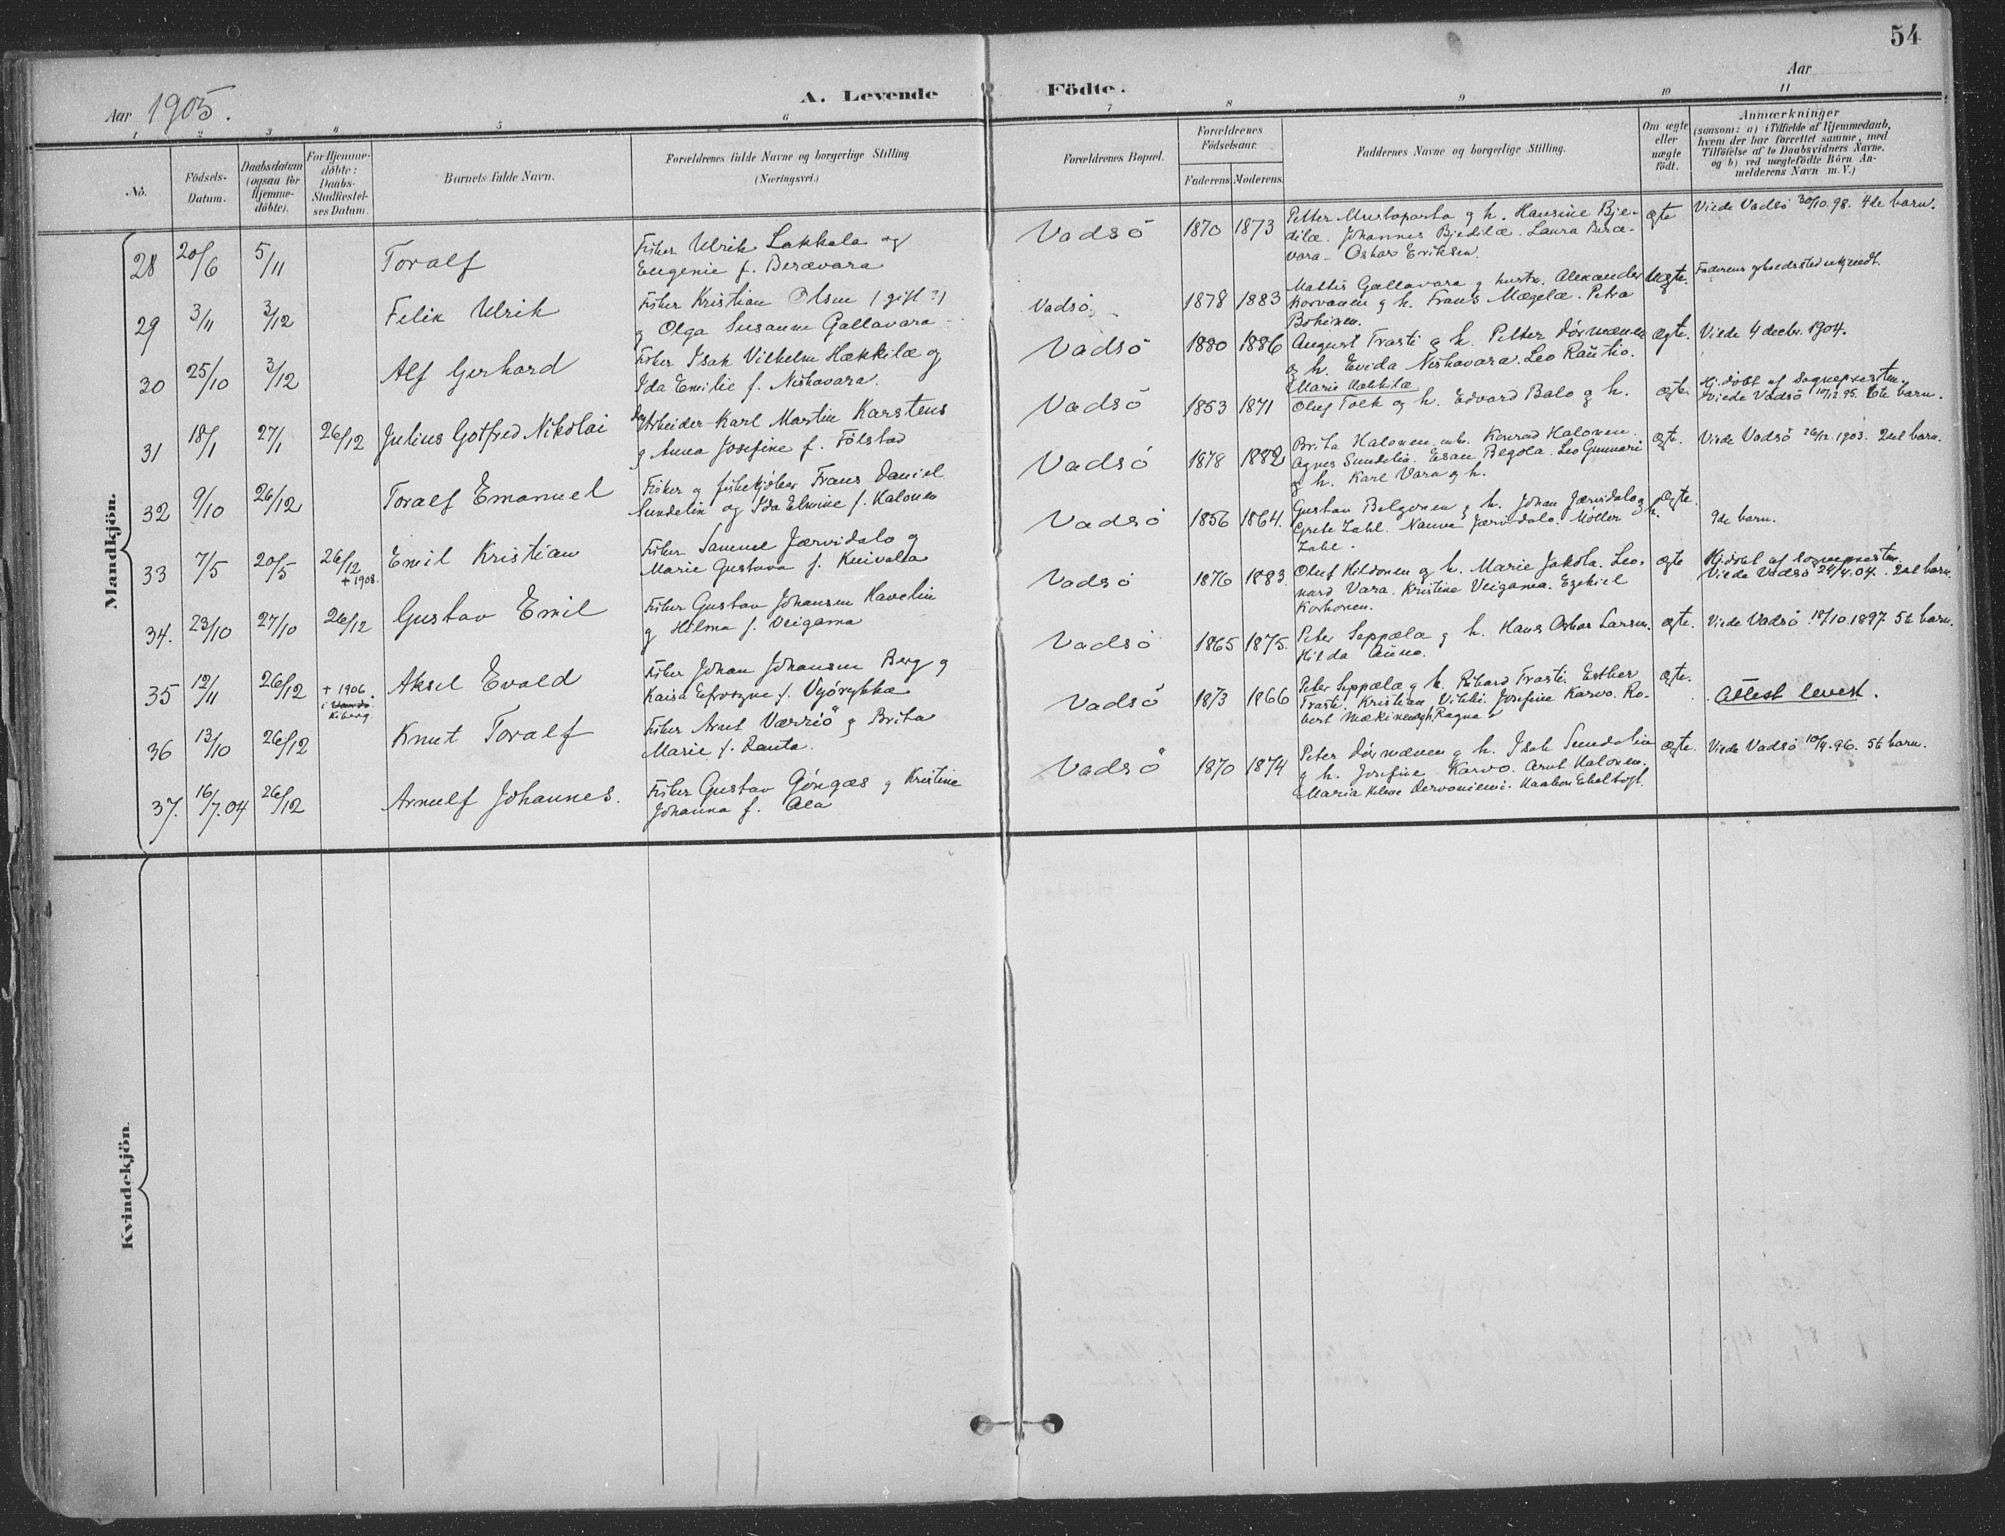 54
Aar 1905.
A. Levende Födte.
Aar
1 2 3 4 5 6 7 8 9 10 11
No.
Födsels-
Datum.
Daabsdatum
(ogsaa for
Hjemme-
döbte).
For Hjemme-
döbte:
Daabs-
Stadfæstel-
ses Datum.
Barnets fulde Navn.
Forældrenes fulde Navne og borgerlige Stilling.
(Næringsvei.)
Forældrenes Bopæl.
Forældrenes
Födselsaar.
Faderens. Moderens.
Faddernes Navne og borgerlige Stilling.
Om ægte
eller
uægte
födt.
Anmærkninger
(saasom: a) i Tilfælde af Hjemmedaab,
hvem der har forrettet samme, med
Tilföielse af to Daabsvidners Navne,
og b) ved uægtefödte Börn An-
melderens Navn m. V.)
Mandkjön.
28 20/6 5/11 Toralf
Fisker Ulrik Lakkala og
Eugenie f. Beravara
Vadsö 1870 1873
Petter Mustaparta g h. Hansine Bje-
dilæ. Johannes Bjedilæ. Laura Beræ-
vara. Oskar Eriksen.
ægte
Viede Vadsö 30/10.98. 4de barn.
29 3/11 3/12 Felix Ulrik
Fisker Kristian Olsen (gift?)
g Olga Susanne Gallavara
Vadsö 1878 1883
Mattis Gallavara g hustr. Alexander
Korvanen g h. Frans Mægelæ. Petra
Bohinen.
Uægte.
Faderens opholdssted ukjendt.
30 25/10 3/12 Alf Gerhard
Fisker Isak Vilhelm Hækkilæ og
Ida Emilie f. Niskavara.
Vadsö 1880 1886
August Trasti g h. Petter Dörmænen
og h. Evida Niskavara. Leo Rautio.
Marie Hækkilæ
ægte.
Viede 4 decbr. 1904.
31 18/1 27/1 26/12 Julius Gotfred Nikolai
Arbeider Karl Martin Karstens
g Anna Josefine f. Fölstad
Vadsö 1853 1871
Oluf Falk og h. Edvard Balo g h.
ægte.
Hj.döbt af Sognepresten.
Viede Vadsö 17/12 95. 6te barn.
32 9/10 26/12 Toralf Emanuel
Fisker og fiskekjöber Frans Daniel
Sundelin og Ida Elmine f. Halonen
Vadsö 1878 1882
Brita Halonen. Konrad Halonen.
Agnes Sundelin. Esan Regola. Leo Gunnari
og h. Karl Vara g h.
ægte.
Viede Vadsö 26/12 1903. 2det barn.
33 7/5 20/5 26/12
+ 1908.
Emil Kristian
Fisker Samuel Jærvidalo g
Marie Gustava f. Knivalta
Vadsö 1856 1864.
Gustav Belgonen g h. Johan Jærvidalo g h.
Grete Zahl. Nanna Jærvidalo. Möller
Zahl.
Ægte.
9de barn.
34. 23/10 27/10 26/12 Gustav Emil
Fisker Gustav Johansen Havelin
g Hilma f. Veigama
Vadsö 1876 1883.
Oluf Hildonen g h. Marie Jakola. Leo-
nard Vara. Kristine Veigama. Ezekiel
Korhonen.
ægte
Hj.döbt af Sognepresten
Viede Vadsö 24/4.04. 2det barn.
35 12/11 26/12
+ 1906.
i Vardö
Kiberg
Aksel Evald
Fisker Johan Johansen Berg g
Kaisa Efrosyne f. Vyörykkæ
Vadsö 1865 1875.
Peter Seppälä g h. Hans Oskar Larsen.
Hilda Auno.
ægte.
Viede Vadsö 18/10.1897. 5te barn.
36 13/10 26/12 Knut Toralf
Fisker Arnt Værriö g Brita
Marie f. Ranta.
Vadsö 1873 1866
Peter Seppälä g h. Rikard Trasti. Esther
Trasti. Kristian Viikki. Josefine Karvo. Ro-
bert Mækinen og h. Ragna
ægte.
Attest levert.
37. 16/7.04 26/12 Arnulf Johannes.
Fisker Gustav Göngæs g Kristine
Johanna f. Ala
Vadsö 1870 1874
Peter Dörmænen g h. Isak Sundelin
g h. Josefine Karvo. Arnt Halonen.
Maria Helene Dervaniemi. Haakon Ekeltoft.
ægte.
Viede Vadsö 10/4.96. 5te barn.
Kvindekjön.